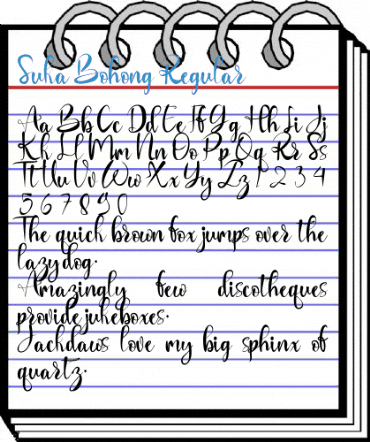 Suka Bohong Regular
Aa Bb Cc Dd Ee Ff Gg Hh Ii Jj
Kk Ll Mm Nn Oo Pp Qq Rr Ss
Tt Uu Vv Ww Xx Yy Zz 1 2 3 4
5 6 7 8 9 0
The quick brown fox jumps over the
lazy dog.
Amazingly few discotheques
provide jukeboxes.
Jackdaws love my big sphinx of
quartz.